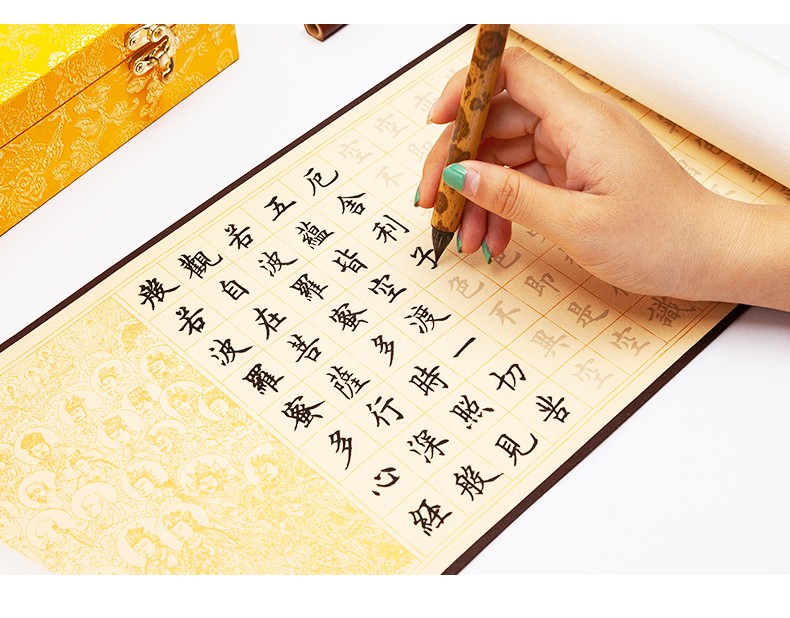 般若波羅蜜多心經
觀自在菩薩行深般
若波羅蜜多時照見
五蘊皆空渡一切苦
厄舍利子色不異空
空不色即是空
空即識
亦